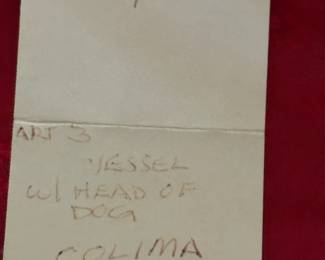 ART 3
VESSEL
W/ HEAD OF
DOG
COLIMA